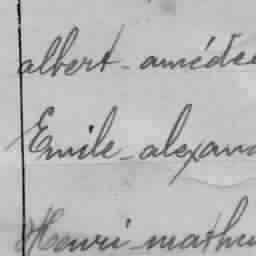 albert-amédée
Emile-alexan
Henri-mathu